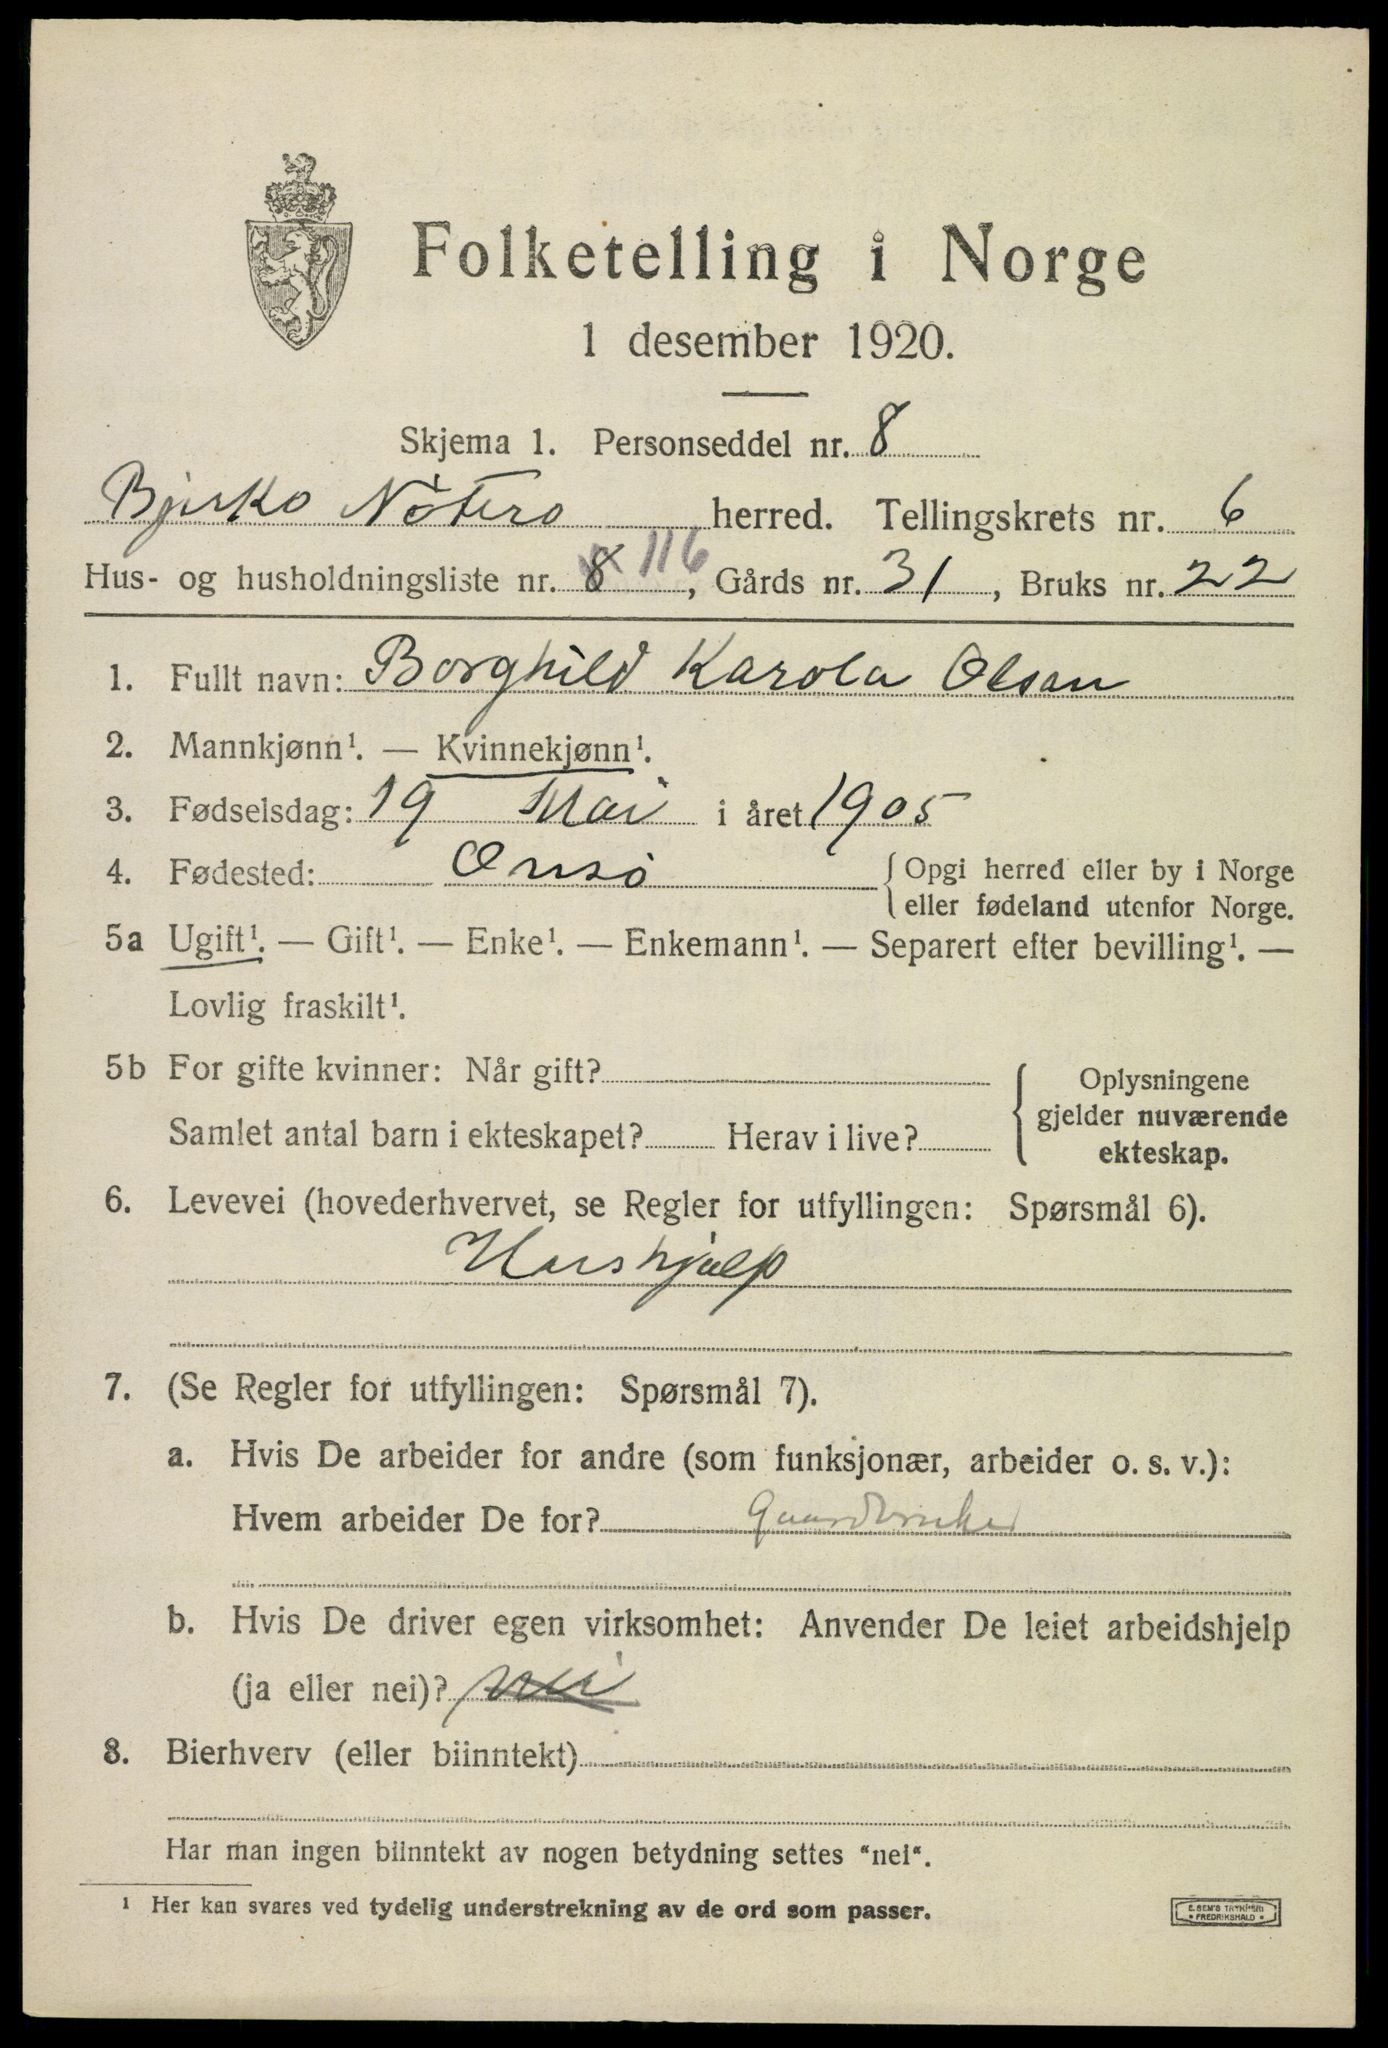 Folketelling i Norge
1 desember 1920.
Skjema 1. Personseddel nr. 8
Bjerkø Nøterø herred. Tellingskrets nr. 6
Hus- og husholdningsliste nr. 8 116, Gårds nr. 31, Bruks nr. 22
1. Fullt navn: Borghild Karola Olsen
2. Mannkjønn¹. — Kvinnekjønn¹.
3. Fødselsdag: 19 Mai i året 1905
4. Fødested: Onsø { Opgi herred eller by i Norge
eller fødeland utenfor Norge.
5a Ugift¹. — Gift¹. — Enke¹. — Enkemann¹. — Separert efter bevilling¹. —
Lovlig fraskilt¹.
5b For gifte kvinner: Når gift?
Samlet antal barn i ekteskapet? Herav i live?
Oplysningene
gjelder nuværende
ekteskap.
6. Levevei (hovederhvervet, se Regler for utfyllingen: Spørsmål 6).
Hushjælp
7. (Se Regler for utfyllingen: Spørsmål 7).
a. Hvis De arbeider for andre (som funksjonær, arbeider o. s. v.):
Hvem arbeider De for? Gaardbruker
b. Hvis De driver egen virksomhet: Anvender De leiet arbeidshjelp
(ja eller nei)? nei
8. Bierhverv (eller biinntekt)
Har man ingen biinntekt av nogen betydning settes "nei".
¹ Her kan svares ved tydelig understrekning av de ord som passer.
E. SEM'S TRYKKERI
FREDRIKSHALD